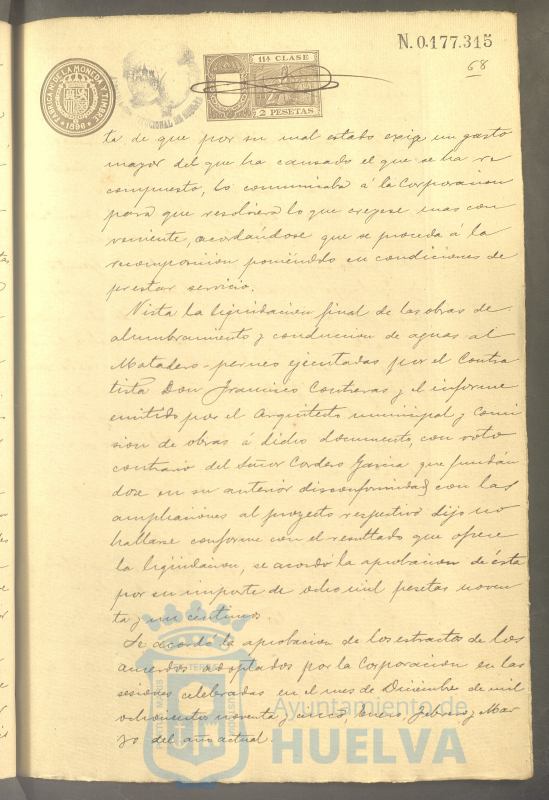 N.0.177.315
68
FABRICA NL. DE LA MONEDA Y TIMBRE
1896
11A CLASE
2 PESETAS
ta de que por su mal estado exige un gasto
mayor del que ha causado el que se ha re
compuesto, lo comunicaba á la Corporacion
para que resolviera lo que creyese mas con
veniente, acordándose que se proceda á la
recomposicion poniéndolo en condiciones de
prestar servicio.
Vista la liquidacion final de las obras de
alumbramiento y conduccion de aguas al
Matadero-perneo ejecutadas por el Contra
tista Don Francisco Contreras y el informe
emitido por el Arquitecto municipal y Comi
sion de obras á dicho documento, con voto
contrario del Señor Cordero Garcia que fundán
dose en su anterior disconformidad con las
ampliaciones al proyecto respectivo dijo no
hallarse conforme con el resultado que ofrece
la liquidacion, se acordó la aprobacion de ésta
por su importe de ocho mil pesetas noven
ta y un céntimos
Se acordó la aprobacion de los extractos de los
acuerdos adoptados por la Corporacion en las
sesiones celebradas en el mes de Diciembre de mil
ochocientos noventa y cinco, Enero, Febrero y Mar
zo del año actual.
Ayuntamiento de
HUELVA